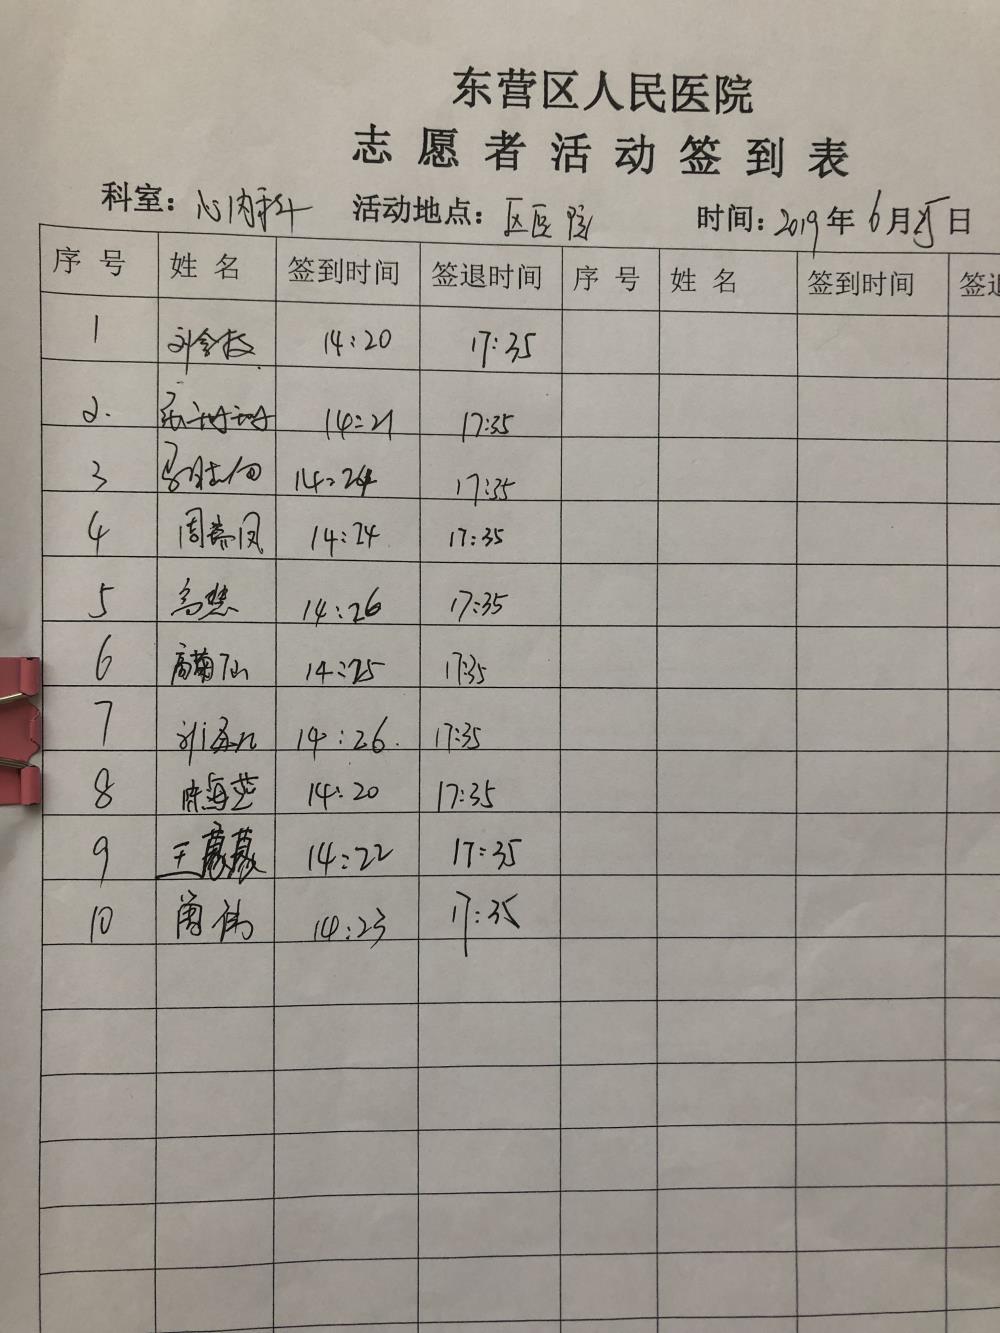 东营区人民医院
志愿者活动签到表
科室：心内科 活动地点：区医院 时间：2019年6月25日
序号 姓名 签到时间 签退时间 序号 姓名 签到时间 签退
1 刘金枝 14:20 17:35
2. 14:21 17:35
3 14:24 17:35
4 周慕凤 14:24 17:35
5 高慧 14:26 17:35
6 高菊仙 14:25 17:35
7 14:26. 17:35
8 陈海芝 14:20 17:35
9 王蒙蒙 14:22 17:35
10 14:23 17:35